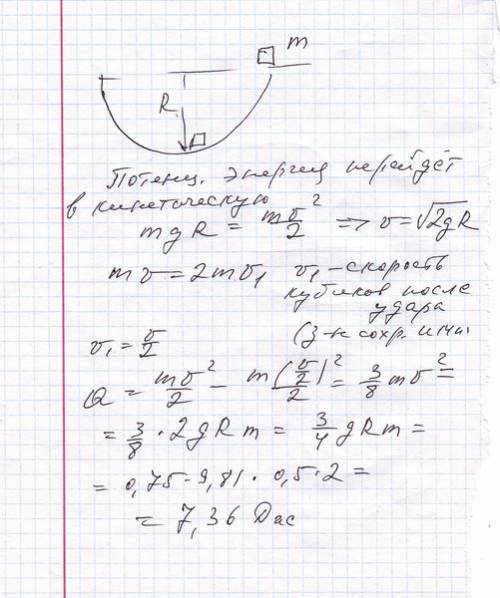 m
R
Потенц. энергия перейдёт
в кинетическую
mgR = mv²/2 => v = √2gR
mv = 2mv₁ v₁ - скорость
кубиков после
удара
(з-н сохр. имп.
v₁ = v/2
Q = mv²/2 - m(v/2)²/2 = 3/8 mv² =
= 3/8 · 2gRm = 3/4 gRm =
= 0,75 · 9,81 · 0,5 · 2 =
= 7,36 Дж